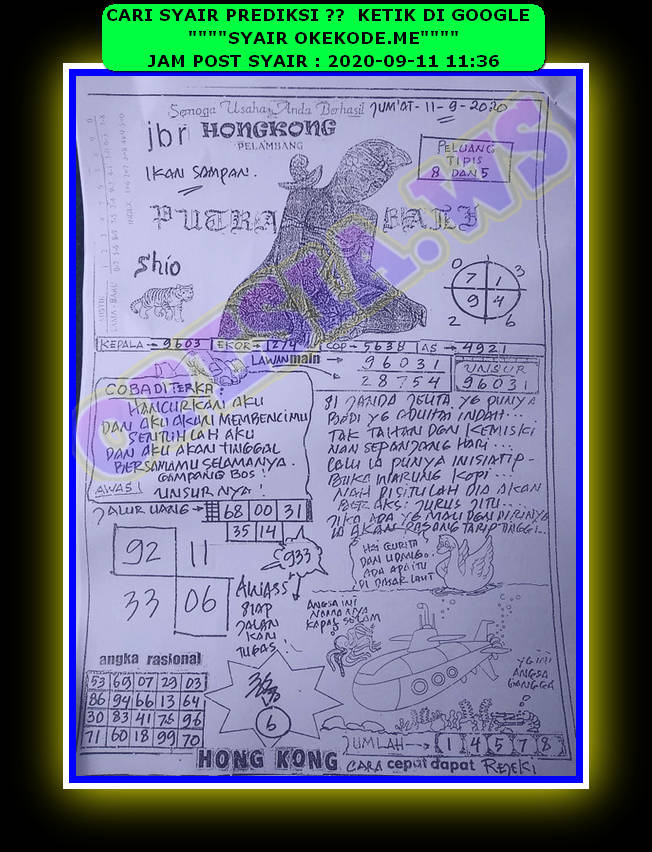 CARI SYAIR PREDIKSI ?? KETIK DI GOOGLE
""""SYAIR OKEKODE.ME""""
JAM POST SYAIR : 2020-09-11 11:36
Semoga Usaha Anda Berhasil JUM'AT-11-9-2020
jbr HONGKONG
PELAMBANG
IKAN SAMPAN.
PELUANG
TIPIS
8 DAN 5
PUTRA BALI
Shio
0 3
7 1
9 4
2 6
KEPALA → 9603 EKOR → 1274 COP → 5638 AS → 4921
LAWAN main → 96031
28754
UNSUR
96031
COBA DI TERKA:
HANCURKAN AKU
DAN AKU AKAN MEMBENCIMU
SENTUHLAH AKU
DAN AKU AKAN TINGGAL
BERSAMAMU SELAMANYA.
GAMPANG BOS!
AWAS UNSURNYA!
SI JANDA JELITA YG PUNYA
BODI YG ADUHAI INDAH...
TAK TAHAN DGN KEMISKI
NAN SEPANJANG HARI...
LALU IA PUNYA INISIATIP-
BUKA WARUNG KOPI...
NAH DISITULAH DIA AKAN
BERAKSI JURUS JITU...
JIKA ADA YG MAU DGN DIRINYA
IA AKAN PASANG TARIP TINGGI...
JALUR UANG → 68 00 31
35 14
92 11
33 06
933
AWASS
SIAP
JALAN
KAN
TUGAS!
HAI GURITA
DAN UDANG.
ADA APA ITU
DI DASAR LAUT
ANGSA INI
NAMANYA
KAPAL SELAM
YG INI
ANGSA
GANGGA
angka rasional
53 65 07 23 03
86 94 66 13 64
30 83 41 76 96
71 60 18 99 70
6
JUMLAH → 1 4 5 7 8
HONG KONG CARA cepat dapat REJEKI
OKESLA.WS